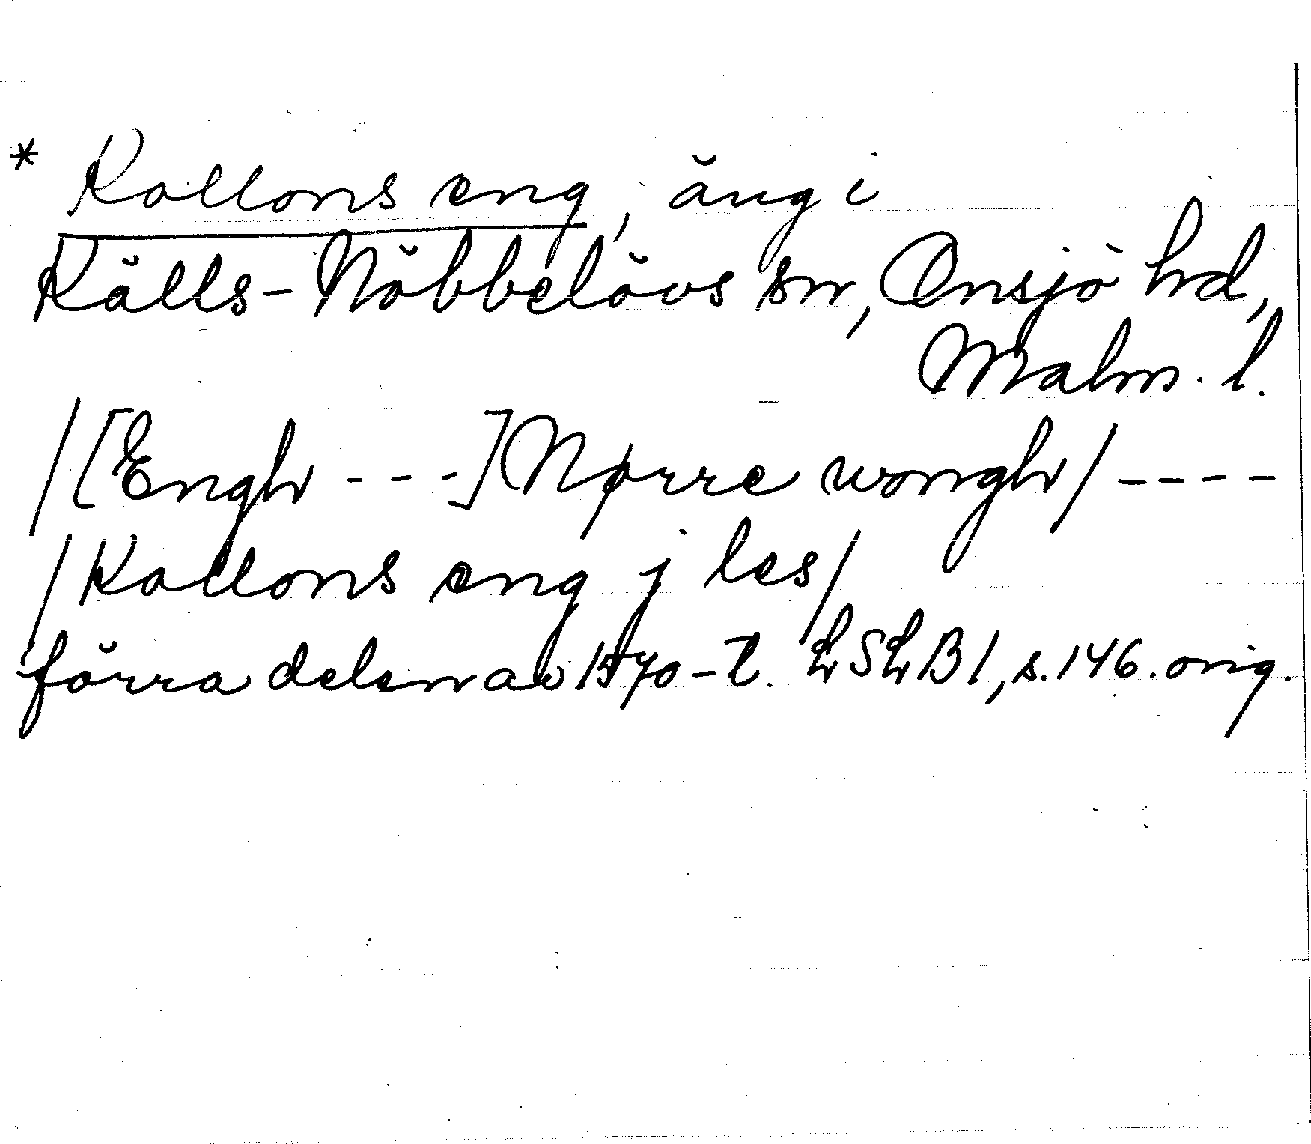 * Kollons eng, äng i
Källs-Nöbbelövs sn, Onsjö hd,
Malm. l.
/[Engh - - -] Nørre wongh/ - - - -
/Kollons eng j les/
förra delen av 1570-t. LSLB1, s. 146. orig.